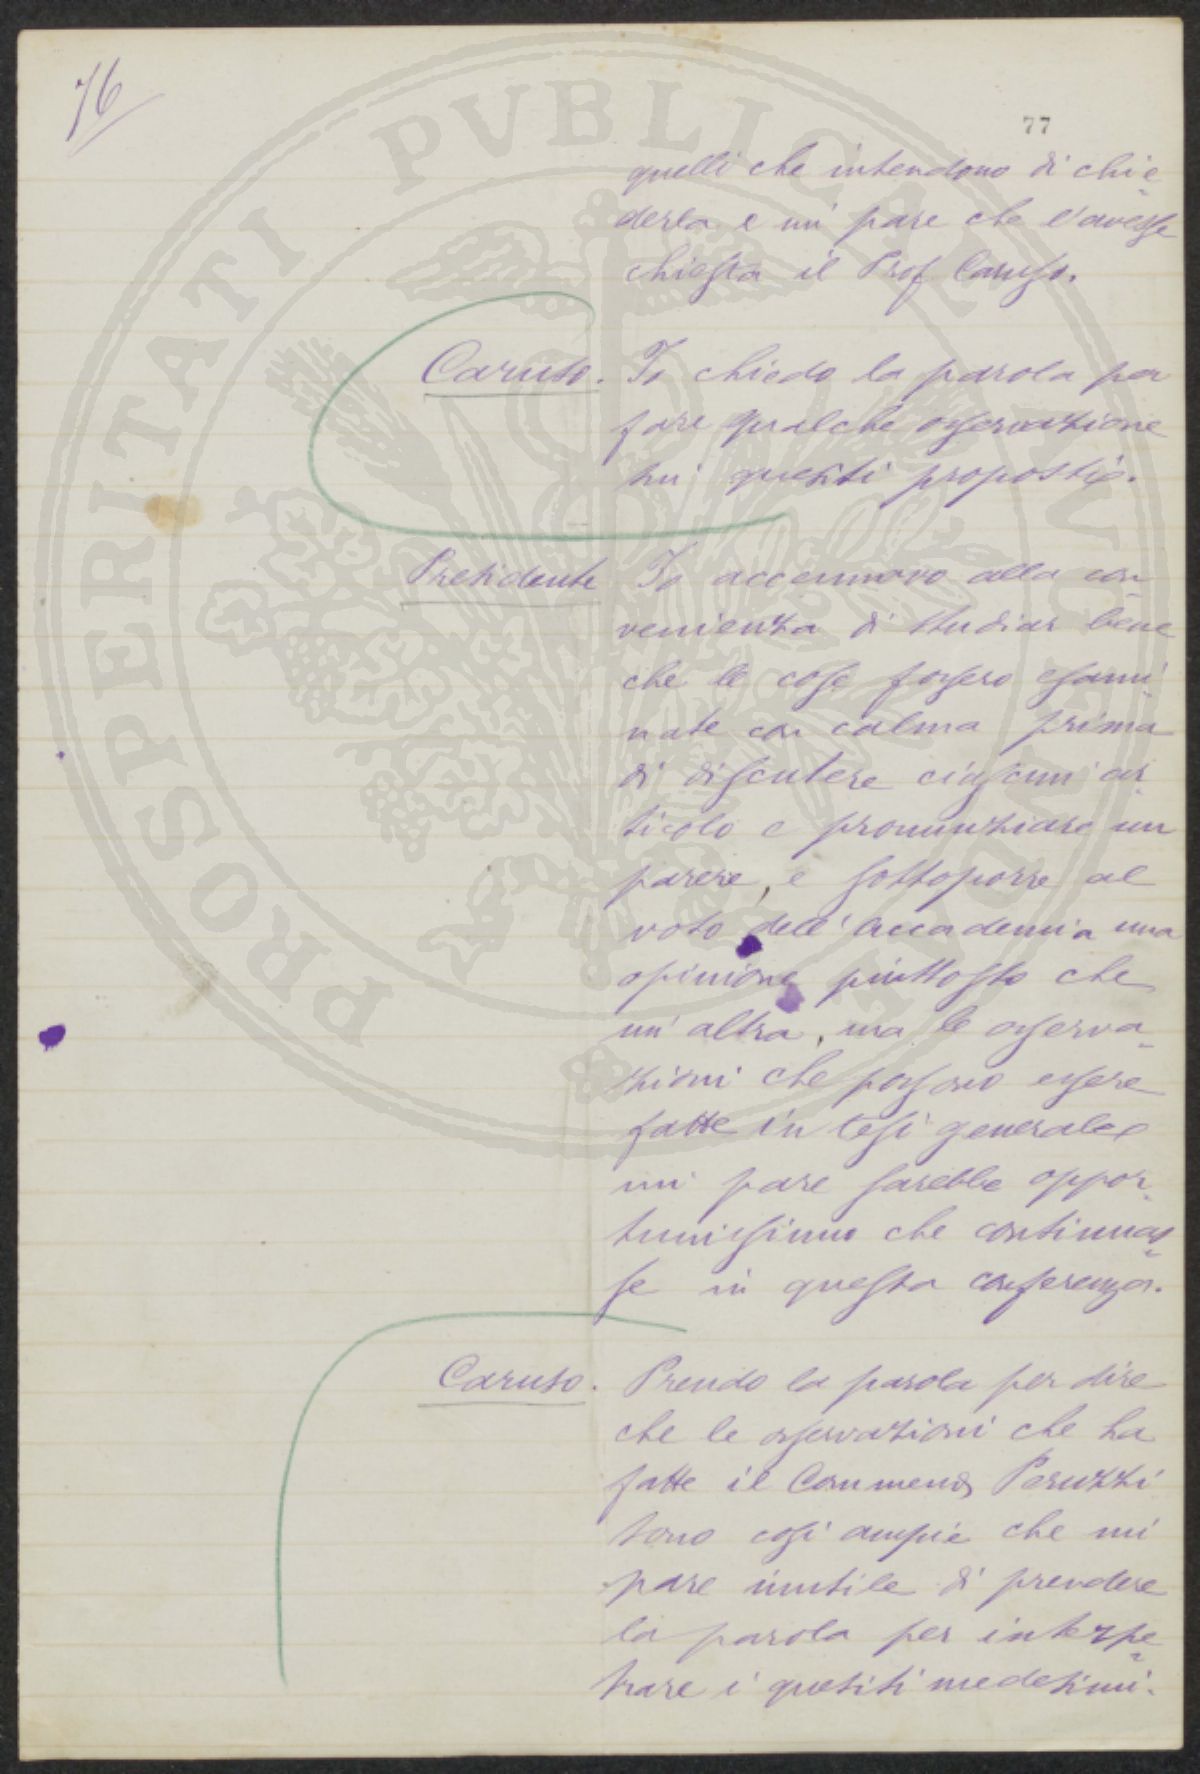 76
77
quelli che intendono di chie-
derla e mi pare che l'avesse
chiesta il Prof Caruso.
Caruso. Io chiedo la parola per
fare qualche osservazione
sui quesiti proposti.
Presidente Io accennavo alla con-
venienza di studiar bene
che le cose fossero esami-
nate con calma prima
di discutere ciascun ar-
ticolo e pronunziare un
parere, e sottoporre al
voto dell'Accademia una
opinione piuttosto che
un'altra, ma le osserva-
zioni che possono essere
fatte in tesi generale
mi pare sarebbe oppor-
tunissimo che continuas-
se in questa conferenza.
Caruso. Prendo la parola per dire
che le osservazioni che ha
fatte il Commend. Peruzzi
sono così ampie che mi
pare inutile di prendere
la parola per interpe-
trare i quesiti medesimi.
PROSPERITATI PVBLICAE